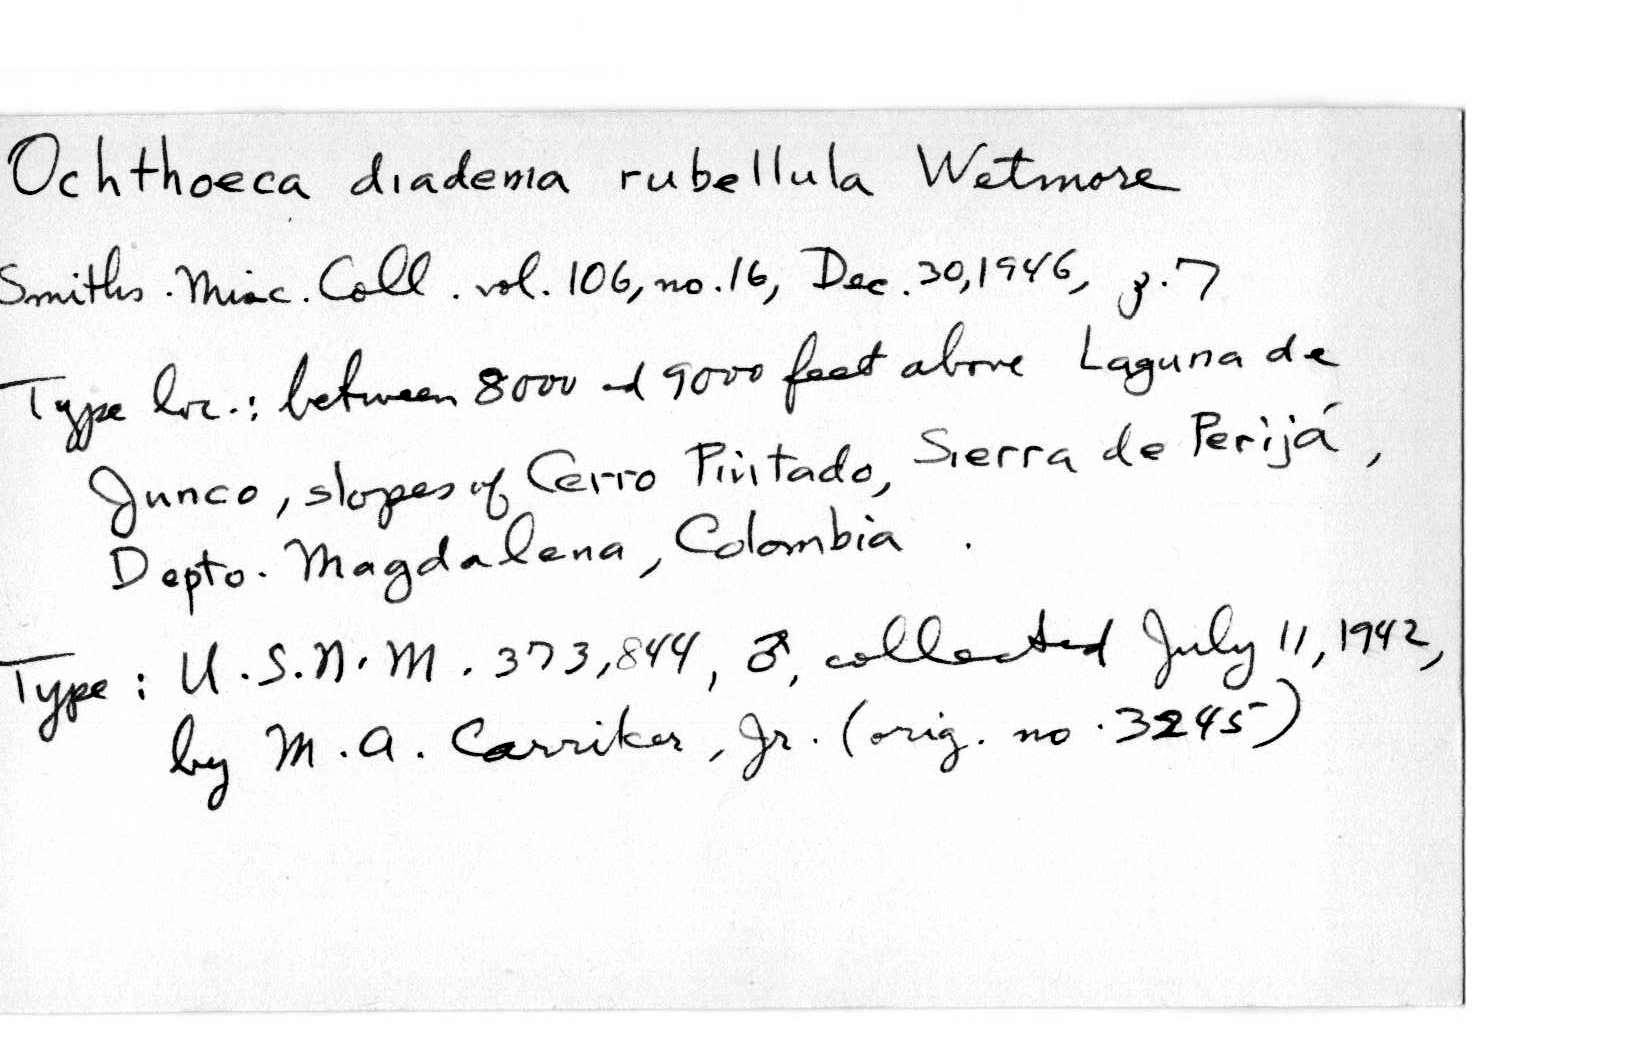 Ochthoeca diadema rubellula Wetmore
Smiths. Misc. Coll. vol. 106, no. 16, Dec. 30, 1946, p. 7
Type loc.: between 8000 and 9000 feet above Laguna de
Junco, slopes of Cerro Pintado, Sierra de Perijá,
Depto. Magdalena, Colombia.
Type: U.S.N.M. 373,844, ♂, collected July 11, 1942,
by M. A. Carriker, Jr. (orig. no. 3245)